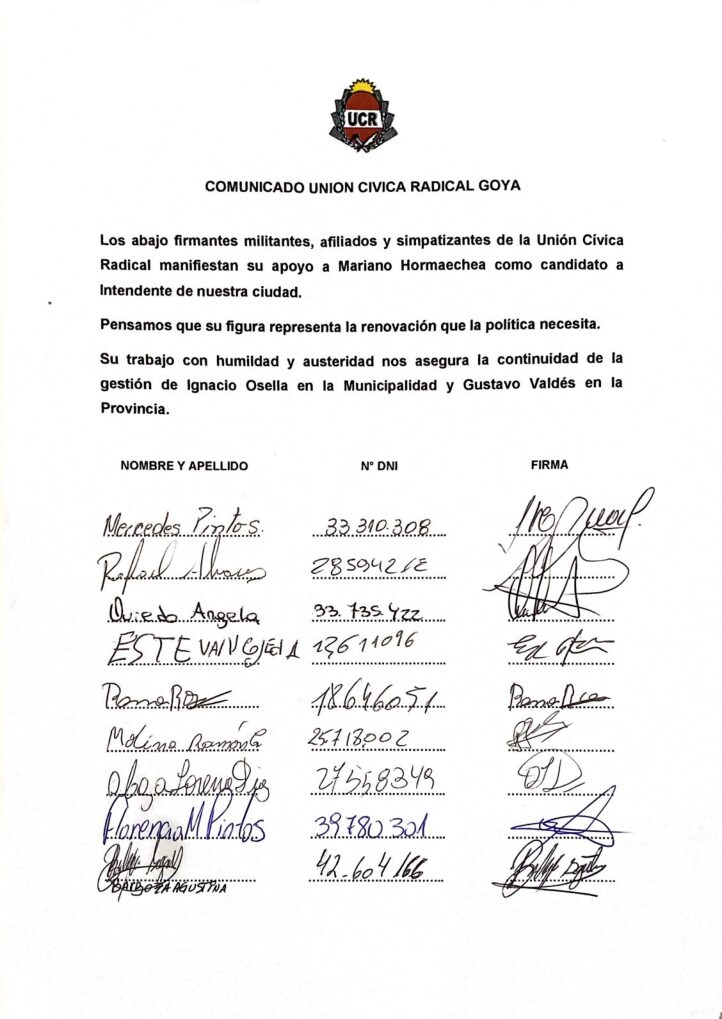 UCR
COMUNICADO UNION CIVICA RADICAL GOYA
Los abajo firmantes militantes, afiliados y simpatizantes de la Unión Cívica
Radical manifiestan su apoyo a Mariano Hormaechea como candidato a
Intendente de nuestra ciudad.
Pensamos que su figura representa la renovación que la política necesita.
Su trabajo con humildad y austeridad nos asegura la continuidad de la
gestión de Ignacio Osella en la Municipalidad y Gustavo Valdés en la
Provincia.
NOMBRE Y APELLIDO N° DNI FIRMA
Mercedes Pintos. 33.310.308
Rafael
Oviedo Angela 33.735.422
ESTEVAN 13611096
Ramona 18.646.051
Molina Ramón 25.718.002
Lorena 27558349
Florencia M Pintos 39.780.301
42.604.166
BARBOZA AGUSTINA